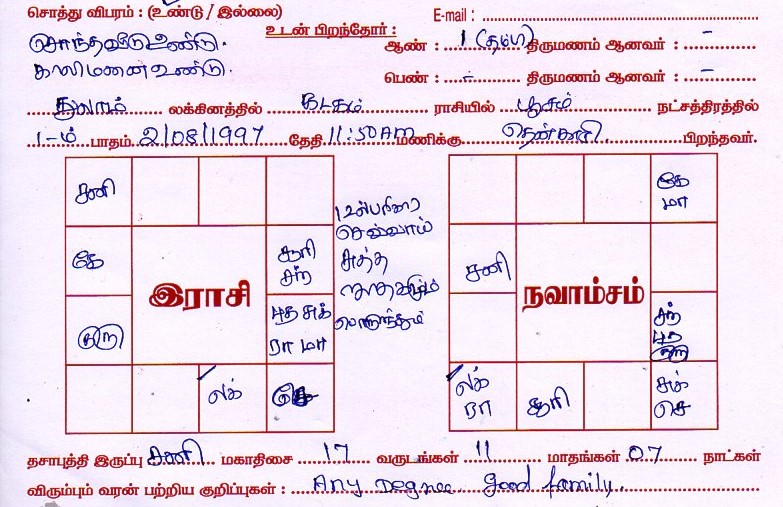 சொத்து விபரம் : (உண்டு / இல்லை)
E-mail :
சொந்தவீடு உண்டு.
உடன் பிறந்தோர் :
ஆண் : 1 (தம்பி) திருமணம் ஆனவர் : –
காலிமனை உண்டு.
பெண் : – திருமணம் ஆனவர் : –
துலாம் லக்கினத்தில் கடகம் ராசியில் பூசம் நட்சத்திரத்தில்
1-ம் பாதம் 2/08/1997 தேதி 11:50 AM மணிக்கு தென்காசி பிறந்தவர்.
சனி
கே
குரு
இராசி
சூரி
சந்
புத சுக்
ரா மா
லக்
செ
செவ்வாய்
சுத்த
கே
மா
சனி
நவாம்சம்
சந்
புத
குரு
லக்
ரா
சூரி
சுக்
செ
தசாபுத்தி இருப்பு சனி மகாதிசை 17 வருடங்கள் 11 மாதங்கள் 07 நாட்கள்
விரும்பும் வரன் பற்றிய குறிப்புகள் : Any Degree Good family.